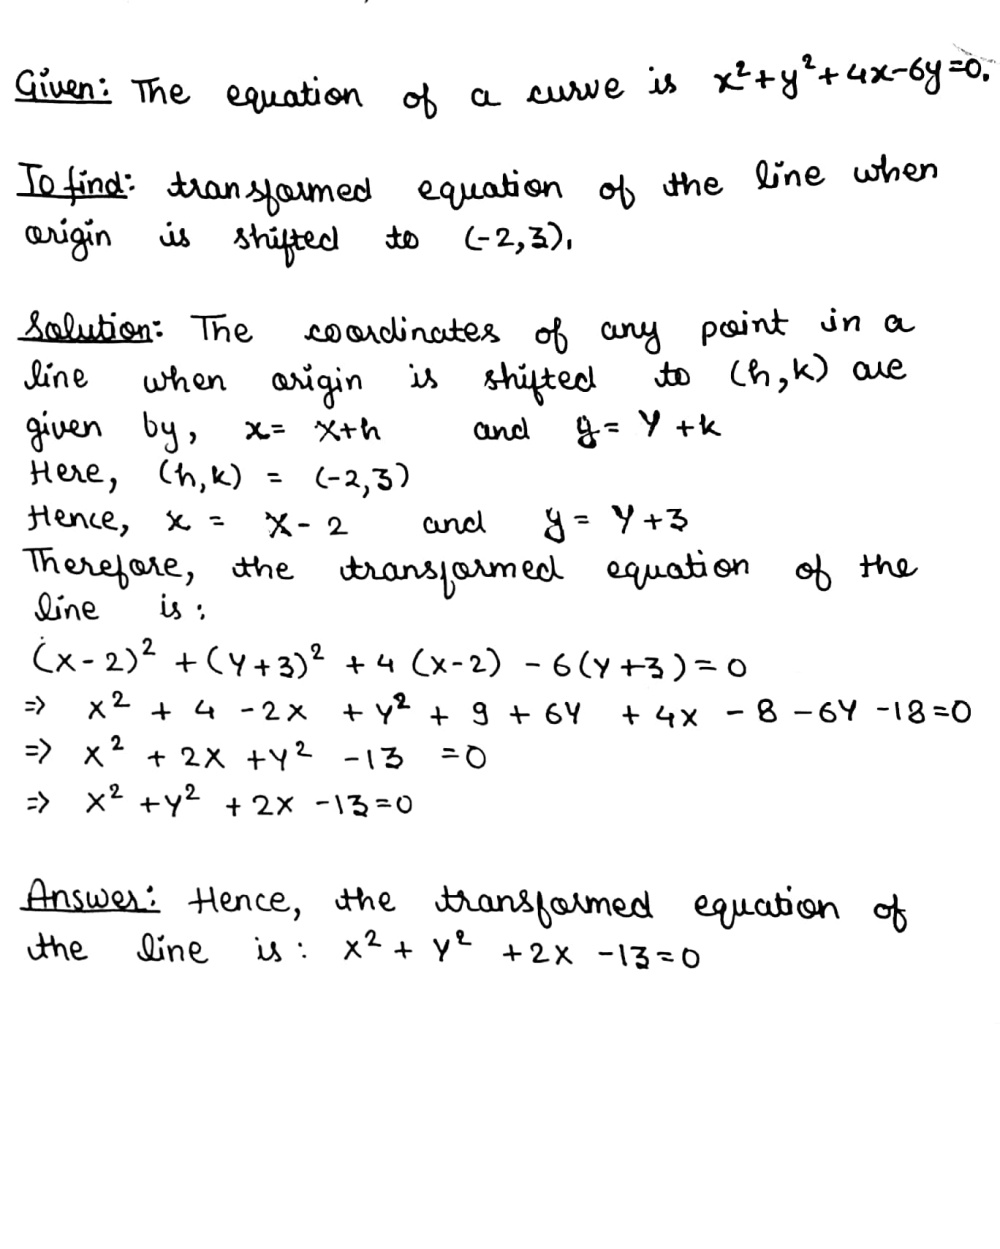 Given: The equation of a curve is x²+y²+4x-6y=0.
To find: transformed equation of the line when
origin is shifted to (-2,3).
Solution: The coordinates of any point in a
line when origin is shifted to (h,k) are
given by, x= X+h and y= Y+k
Here, (h,k) = (-2,3)
Hence, x = X-2 and y= Y+3
Therefore, the transformed equation of the
line is:
(x-2)² +(Y+3)² +4 (x-2) -6(Y+3)=0
=> x² + 4 -2x + y² + 9 + 6Y + 4x - 8 -6Y -18=0
=> x² + 2x +Y² -13 =0
=> x² +y² + 2x -13=0
Answer: Hence, the transformed equation of
the line is: x² + y² +2x -13=0